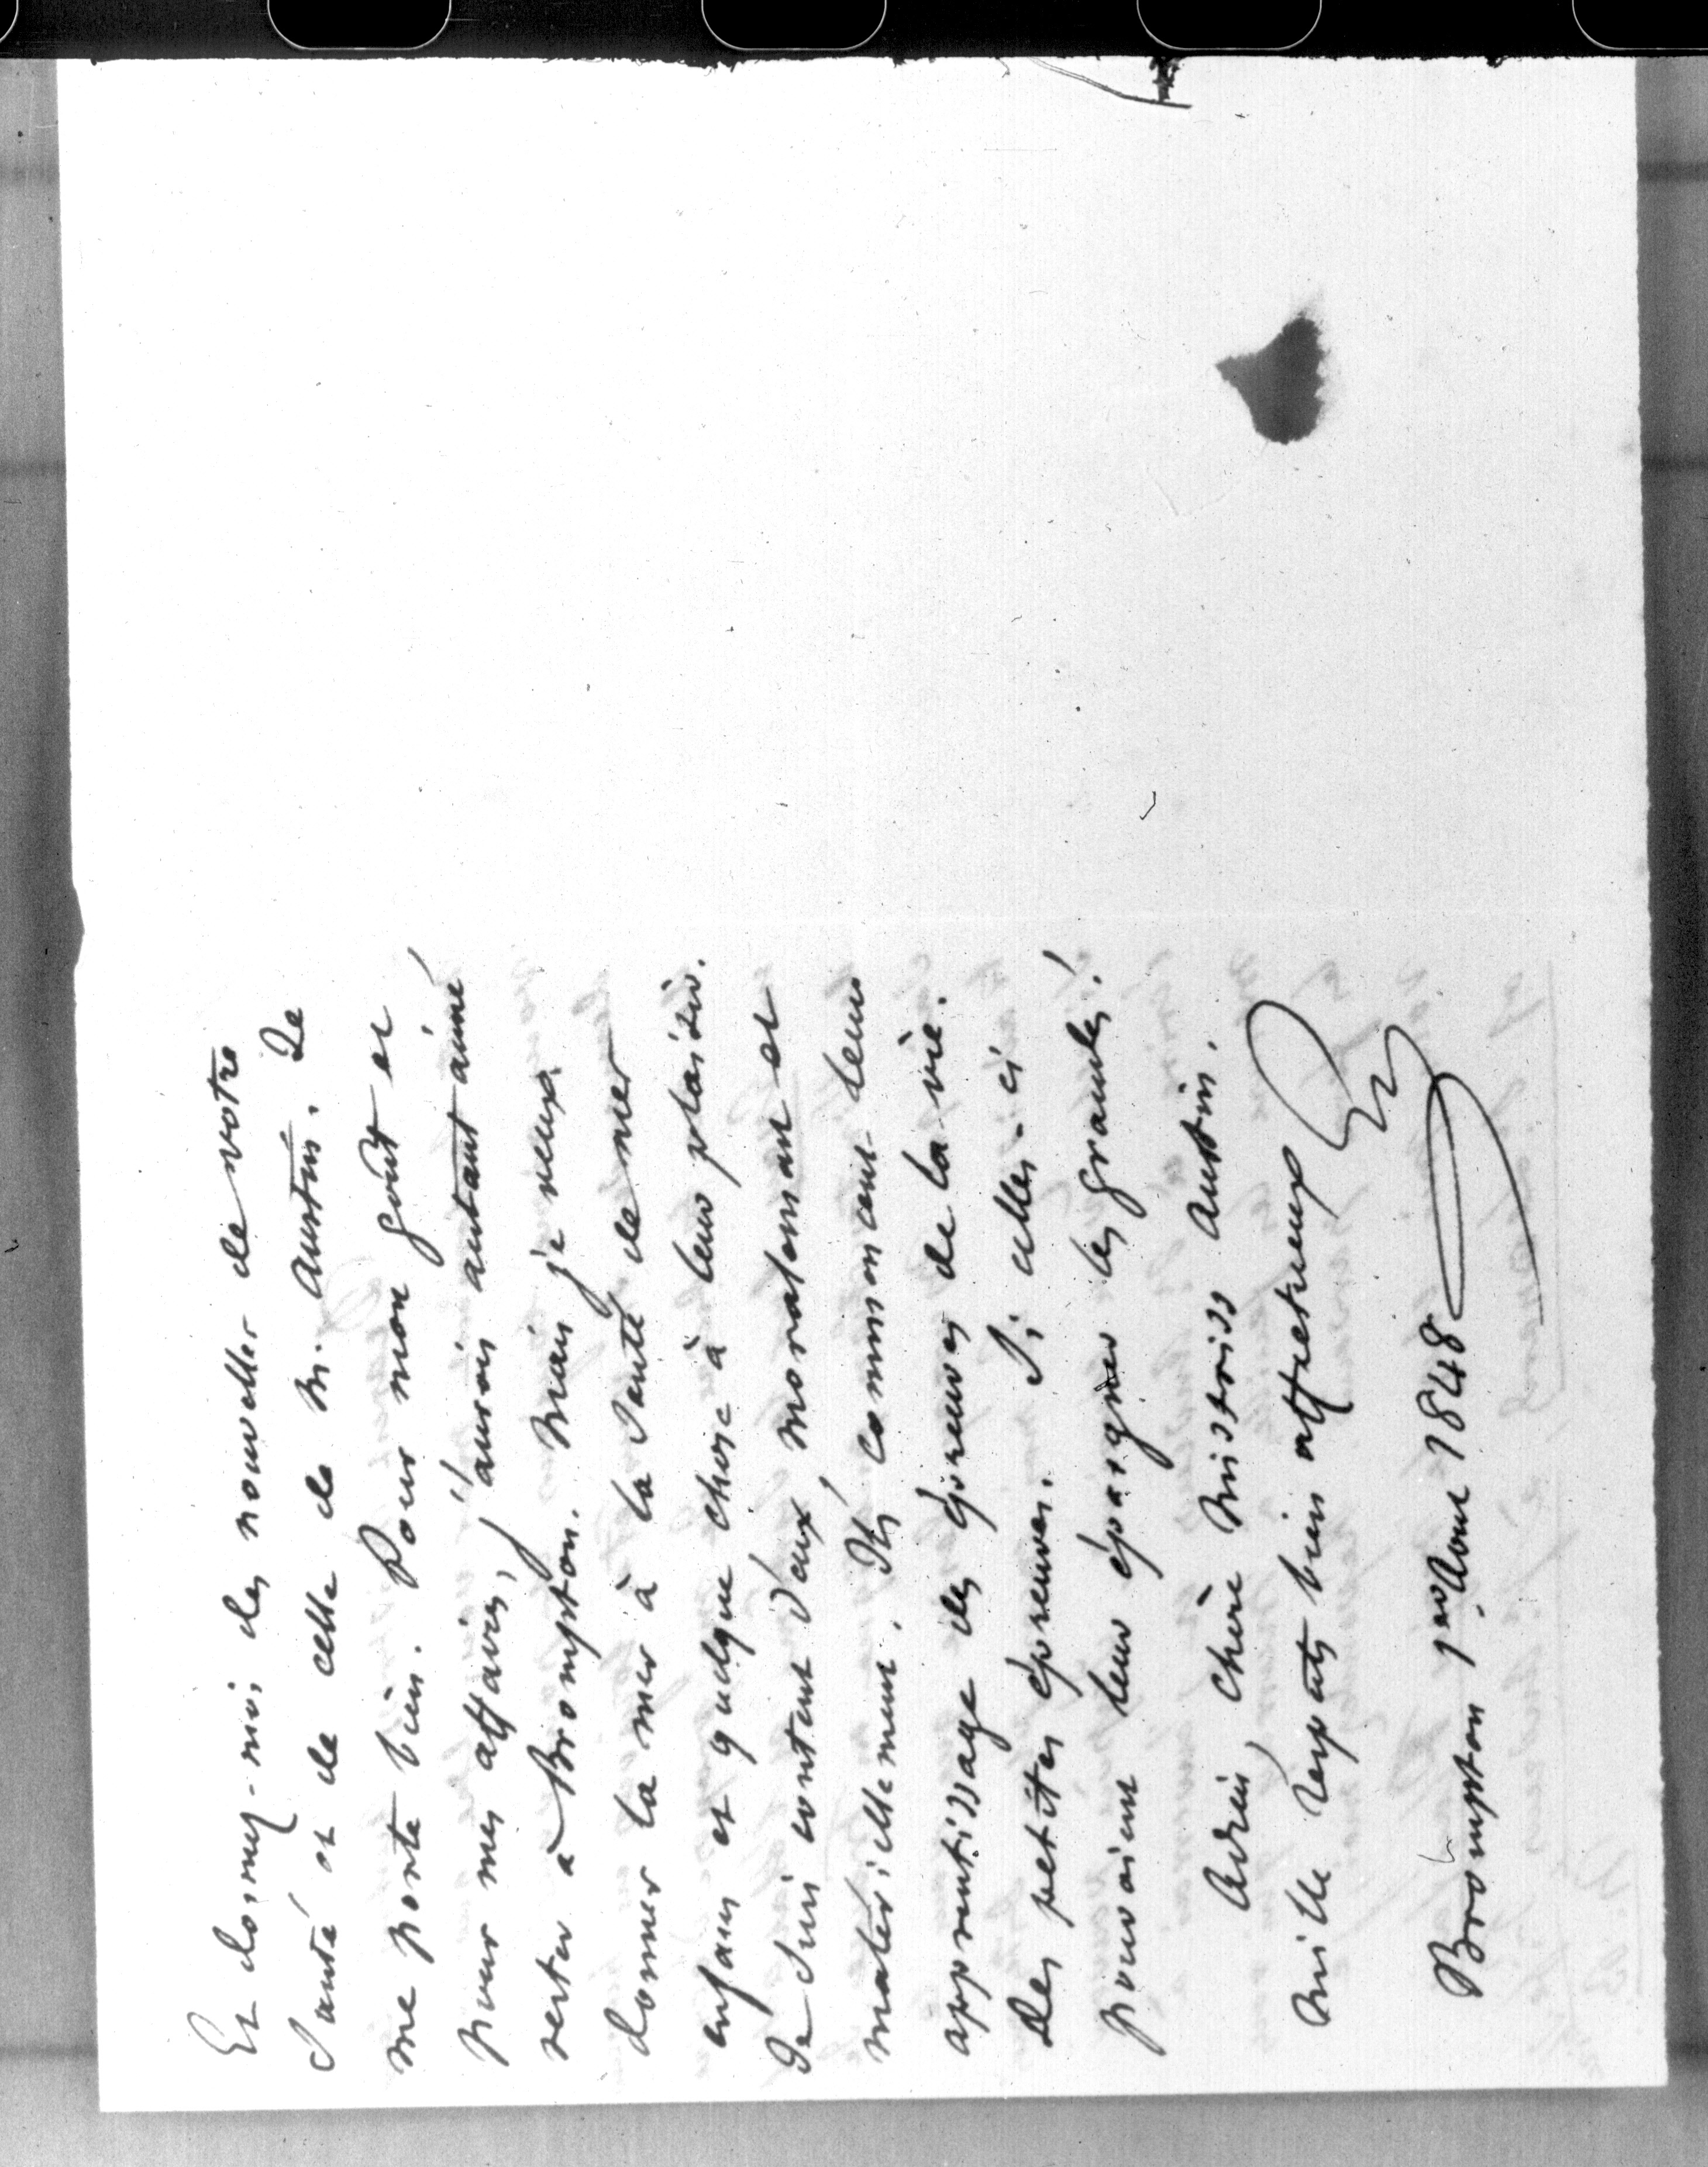 Et donnez-moi des nouvelles de votre
santé et de celle de M. Austin. Je
me porte bien. Pour mon goût et
pour mes affaires, j'aurois autant aimé
rester à Brompton. Mais je veux
donner la mer à la santé de mes
enfans et quelque chose à leur plaisir.
Je suis content d'eux moralement et
matériellement. Ils commencent leur
apprentissage des épreuves de la vie.
Des petites épreuves. Si celles-ci
pouvoient leur épargner les grandes!
Adieu, chère Mistriss Austin.
Mille respects bien affectueux
Brompton 1er Aout 1848